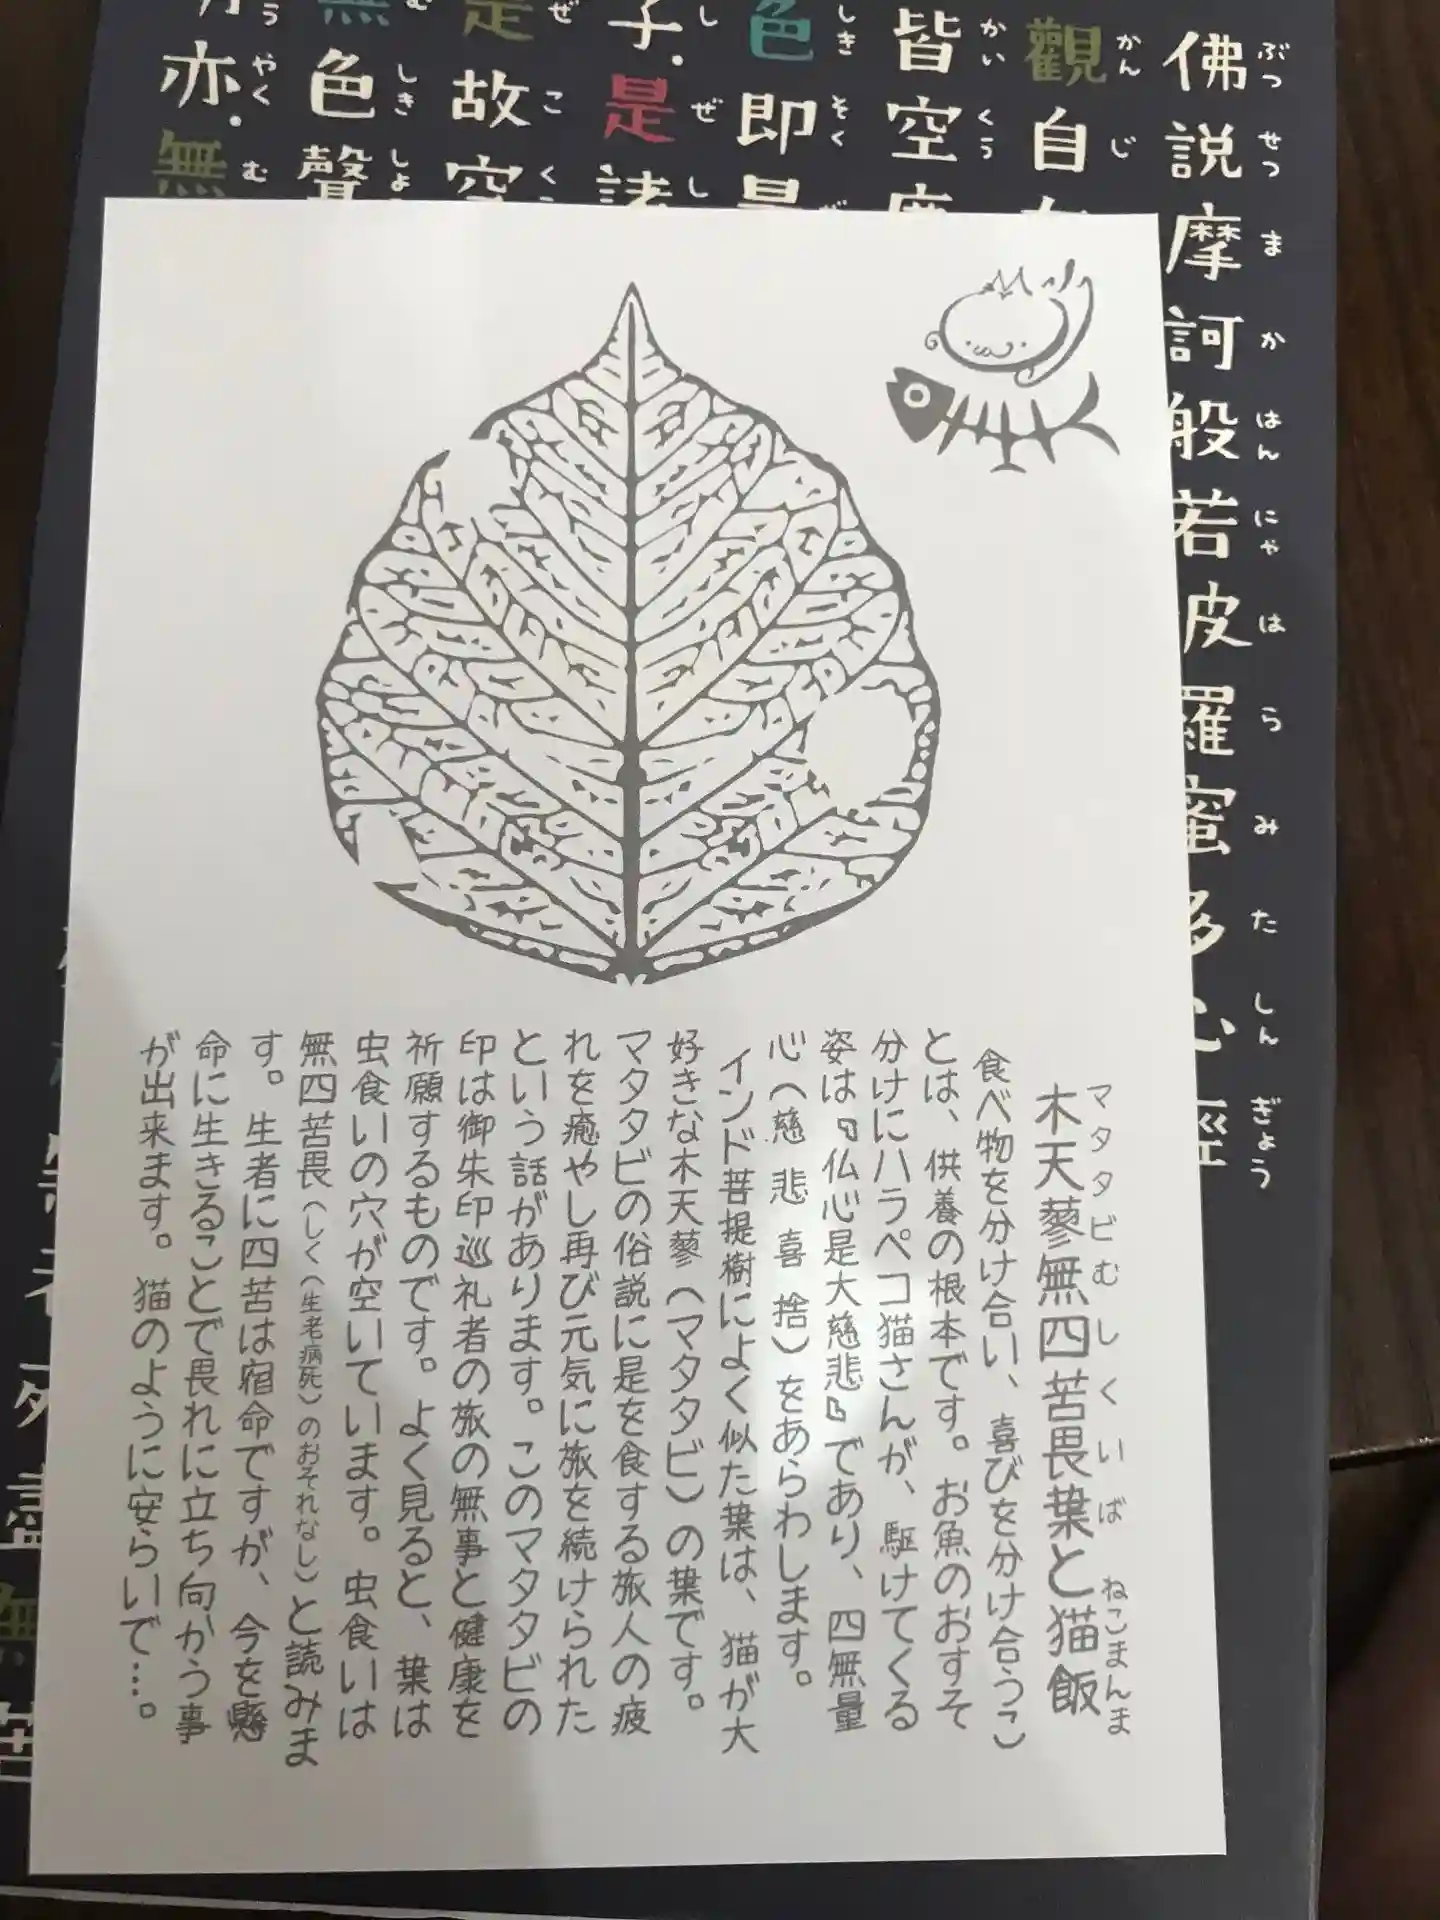 佛説摩訶般若波羅蜜多心經
ぶつせつまかはんにゃはらみたしんぎょう
觀自
かんじ
皆空
かいくう
色即是
しきそく
子是諸
しぜし
是故空
ぜこくう
無色聲
むしきしょ
亦無
やくむ
木天蓼無四苦畏葉と猫飯
マタタビむしくいばねこまんま
食べ物を分け合い、喜びを分け合うこ
とは、供養の根本です。お魚のおすそ
分けにハラペコ猫さんが、駆けてくる
姿は『仏心是大慈悲』であり、四無量
心(慈悲喜捨)をあらわします。
インド菩提樹によく似た葉は、猫が大
好きな木天蓼(マタタビ)の葉です。
マタタビの俗説に是を食する旅人の疲
れを癒やし再び元気に旅を続けられた
という話があります。このマタタビの
印は御朱印巡礼者の旅の無事と健康を
祈願するものです。よく見ると、葉は
虫食いの穴が空いています。虫食いは
無四苦畏(しく(生老病死)のおそれなし)と読みま
す。生者に四苦は宿命ですが、今を懸
命に生きることで畏れに立ち向かう事
が出来ます。猫のように安らいで…。